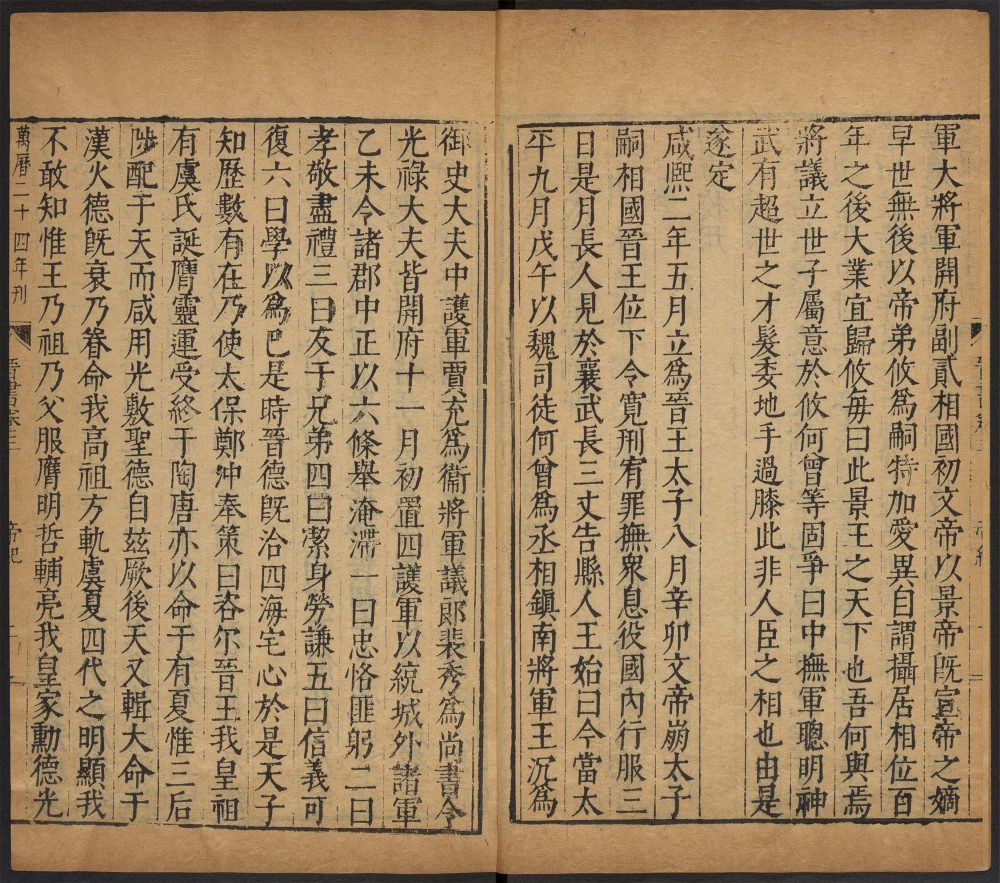 軍大將軍開府副貳相國初文帝以景帝旣宣帝之嫡
早世無後以帝弟攸爲嗣特加愛異自謂攝居相位百
年之後大業宜歸攸每曰此景王之天下也吾何與焉
將議立世子屬意於攸何曾等固爭曰中撫軍聰明神
武有超世之才髮委地手過膝此非人臣之相也由是
遂定
咸熈二年五月立爲晉王太子八月辛卯文帝崩太子
嗣相國晉王位下令寬刑宥罪撫衆息役國內行服三
日是月長人見於襄武長三丈告縣人王始曰今當太
平九月戊午以魏司徒何曾爲丞相鎮南將軍王沉爲
御史大夫中護軍賈充爲衞將軍議郎裴秀爲尚書令
光祿大夫皆開府十一月初置四護軍以統城外諸軍
乙未令諸郡中正以六條舉淹滯一曰忠恪匪躬二曰
孝敬盡禮三曰友于兄弟四曰潔身勞謙五曰信義可
復六曰學以爲己是時晉德旣洽四海宅心於是天子
知歷數有在乃使太保鄭沖奉策曰咨尔晉王我皇祖
有虞氏誕膺靈運受終于陶唐亦以命于有夏惟三后
陟配于天而咸用光敷聖德自玆厥後天又輯大命于
漢火德旣衰乃眷命我高祖方軌虞夏四代之明顯我
不敢知惟王乃祖乃父服膺明哲輔亮我皇家勳德光
萬曆二十四年刊
晉書卷三
帝紀